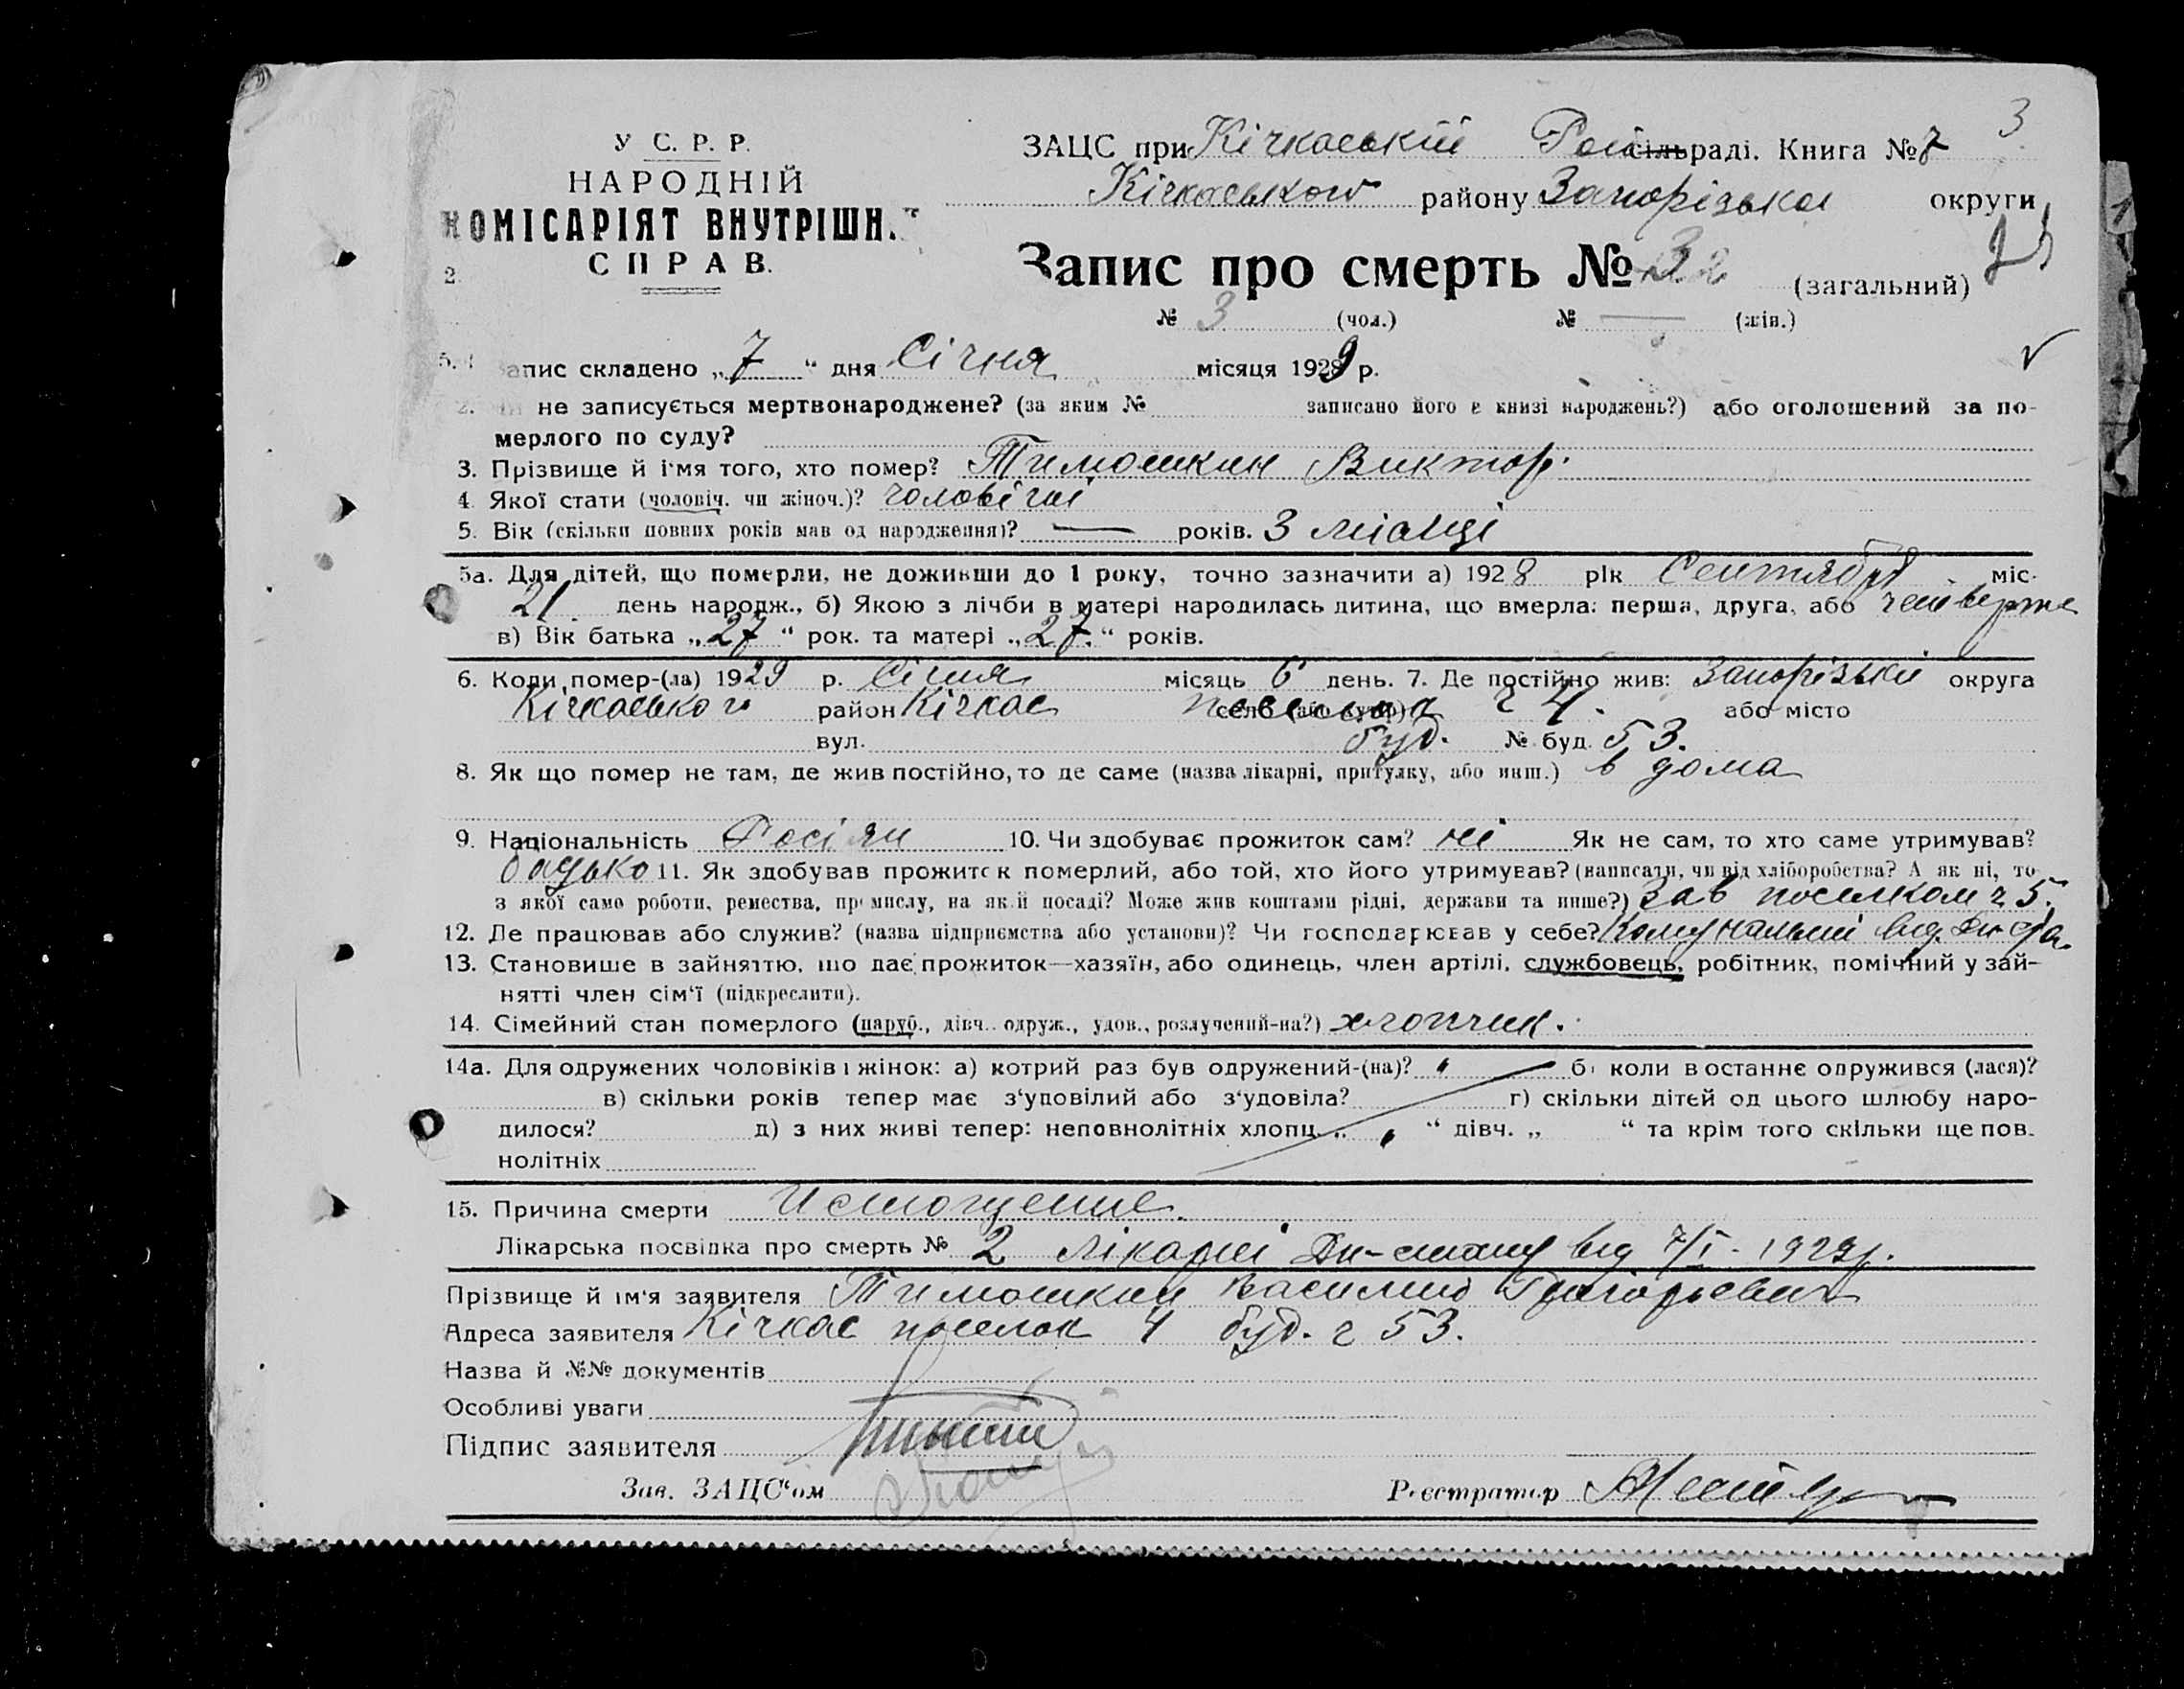 3
У С. Р. Р.
НАРОДНІЙ
КОМІСАРІЯТ ВНУТРІШН.
СПРАВ.
ЗАЦС при Кічкаській Рай сільраді. Книга № 7
Кічкаського району Запорізька округи
Запис про смерть № 32 (загальний)
№ 3 (чол.) № — (жін.)
апис складено „ 7 “ дня Січня місяця 1929 р.
2. не записується мертвонароджене? (за яким № записано його в книзі народжень?) або оголошений за по-
мерлого по суду?
3. Прізвище й ім'я того, хто помер? Тимошкин Виктор.
4. Якої стати (чоловіч. чи жіноч.)? чоловічої
5. Вік (скільки повних років мав од народження)? — років. 3 місяці
5а. Для дітей, що померли, не доживши до 1 року, точно зазначити а) 1928 рік Сентября міс.
21 день народж., б) Якою з лічби в матері народилась дитина, що вмерла: перша, друга, або четверта
в) Вік батька „ 27 “ рок. та матері „ 27. “ років.
6. Коли помер-(ла) 1929 р. Січня місяць 6 день. 7. Де постійно жив: Запорізької округа
Кічкаського район Кічкас село (або хутір) поселок ч 4. або місто
вул. буд. № буд. 53.
8. Як що помер не там, де жив постійно, то де саме (назва лікарні, притулку, або инш.) в дома
9. Національність Росіян 10. Чи здобуває прожиток сам? ні Як не сам, то хто саме утримував?
батько 11. Як здобував прожиток померлий, або той, хто його утримував? (написати, чи від хліборобства? А як ні, то
з якої само роботи, ремества, промислу, на якій посаді? Може жив коштами рідні, держави та инше?) Зав поселком ч 5.
12. Де працював або служив? (назва підприємства або установи)? Чи господарював у себе? Комунальний від.
13. Становише в зайняттю, що дає прожиток—хазяїн, або одинець, член артілі, службовець, робітник, помічний у зай-
нятті член сім'ї (підкреслити).
14. Сімейний стан померлого (паруб., дівч. одруж., удов., розлучений-на?) хлопчик.
14а. Для одружених чоловіків і жінок: а) котрий раз був одружений-(на)? б) коли востаннє одружився (лася)?
в) скільки років тепер має з'удовілий або з'удовіла? г) скільки дітей од цього шлюбу наро-
дилося? д) з них живі тепер: неповнолітніх хлопц. „ “ дівч. „ “ та крім того скільки ще пов.
нолітніх
15. Причина смерти Истощение.
Лікарська посвідка про смерть № 2 Лікарні від 7/I - 1929 р.
Прізвище й ім'я заявителя Тимошкин Василий Григорьевич
Адреса заявителя Кічкас поселок 4 буд. ч 53.
Назва й №№ документів
Особливі уваги
Підпис заявителя
Зав. ЗАЦС'ом Реєстратор